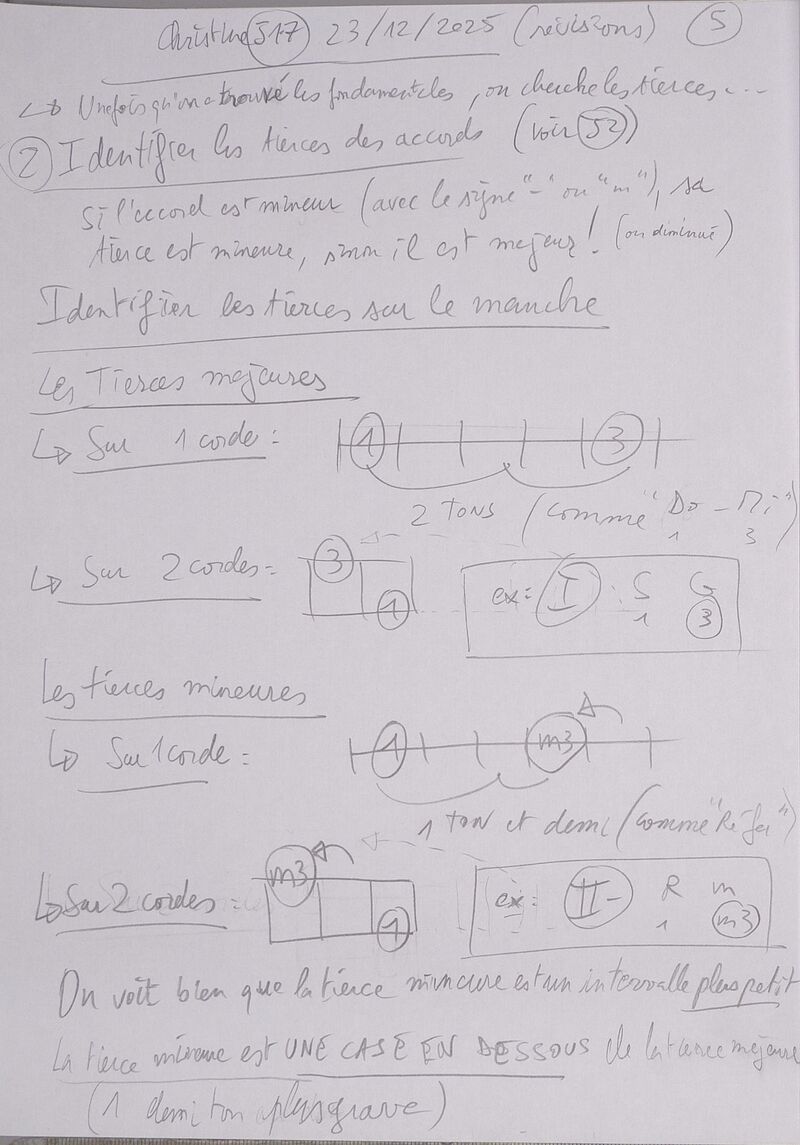 Christine 517 23/12/2025 (révisions) 5
↳ Une fois qu'on a trouvé les fondamentales, on cherche les tierces...
2 Identifier les tierces des accords (voir 52)
Si l'accord est mineur (avec le signe "-" ou "m"), sa
tierce est mineure, sinon il est majeur! (ou diminué)
Identifier les tierces sur le manche
Les Tierces majeures
↳ Sur 1 corde: 1 3
2 TONS (comme "Do - Mi")
1 3
↳ Sur 2 cordes= 3 1
ex: I S G
1 3
Les tierces mineures
↳ Sur 1 corde= 1 m3
1 Ton et demi (comme "Ré-fa")
↳ Sur 2 cordes= m3 1
ex: II- R m
1 m3
On voit bien que la tierce mineure est un intervalle plus petit
La tierce mineure est UNE CASE EN DESSOUS de la tierce majeure
(1 demi ton plus grave)